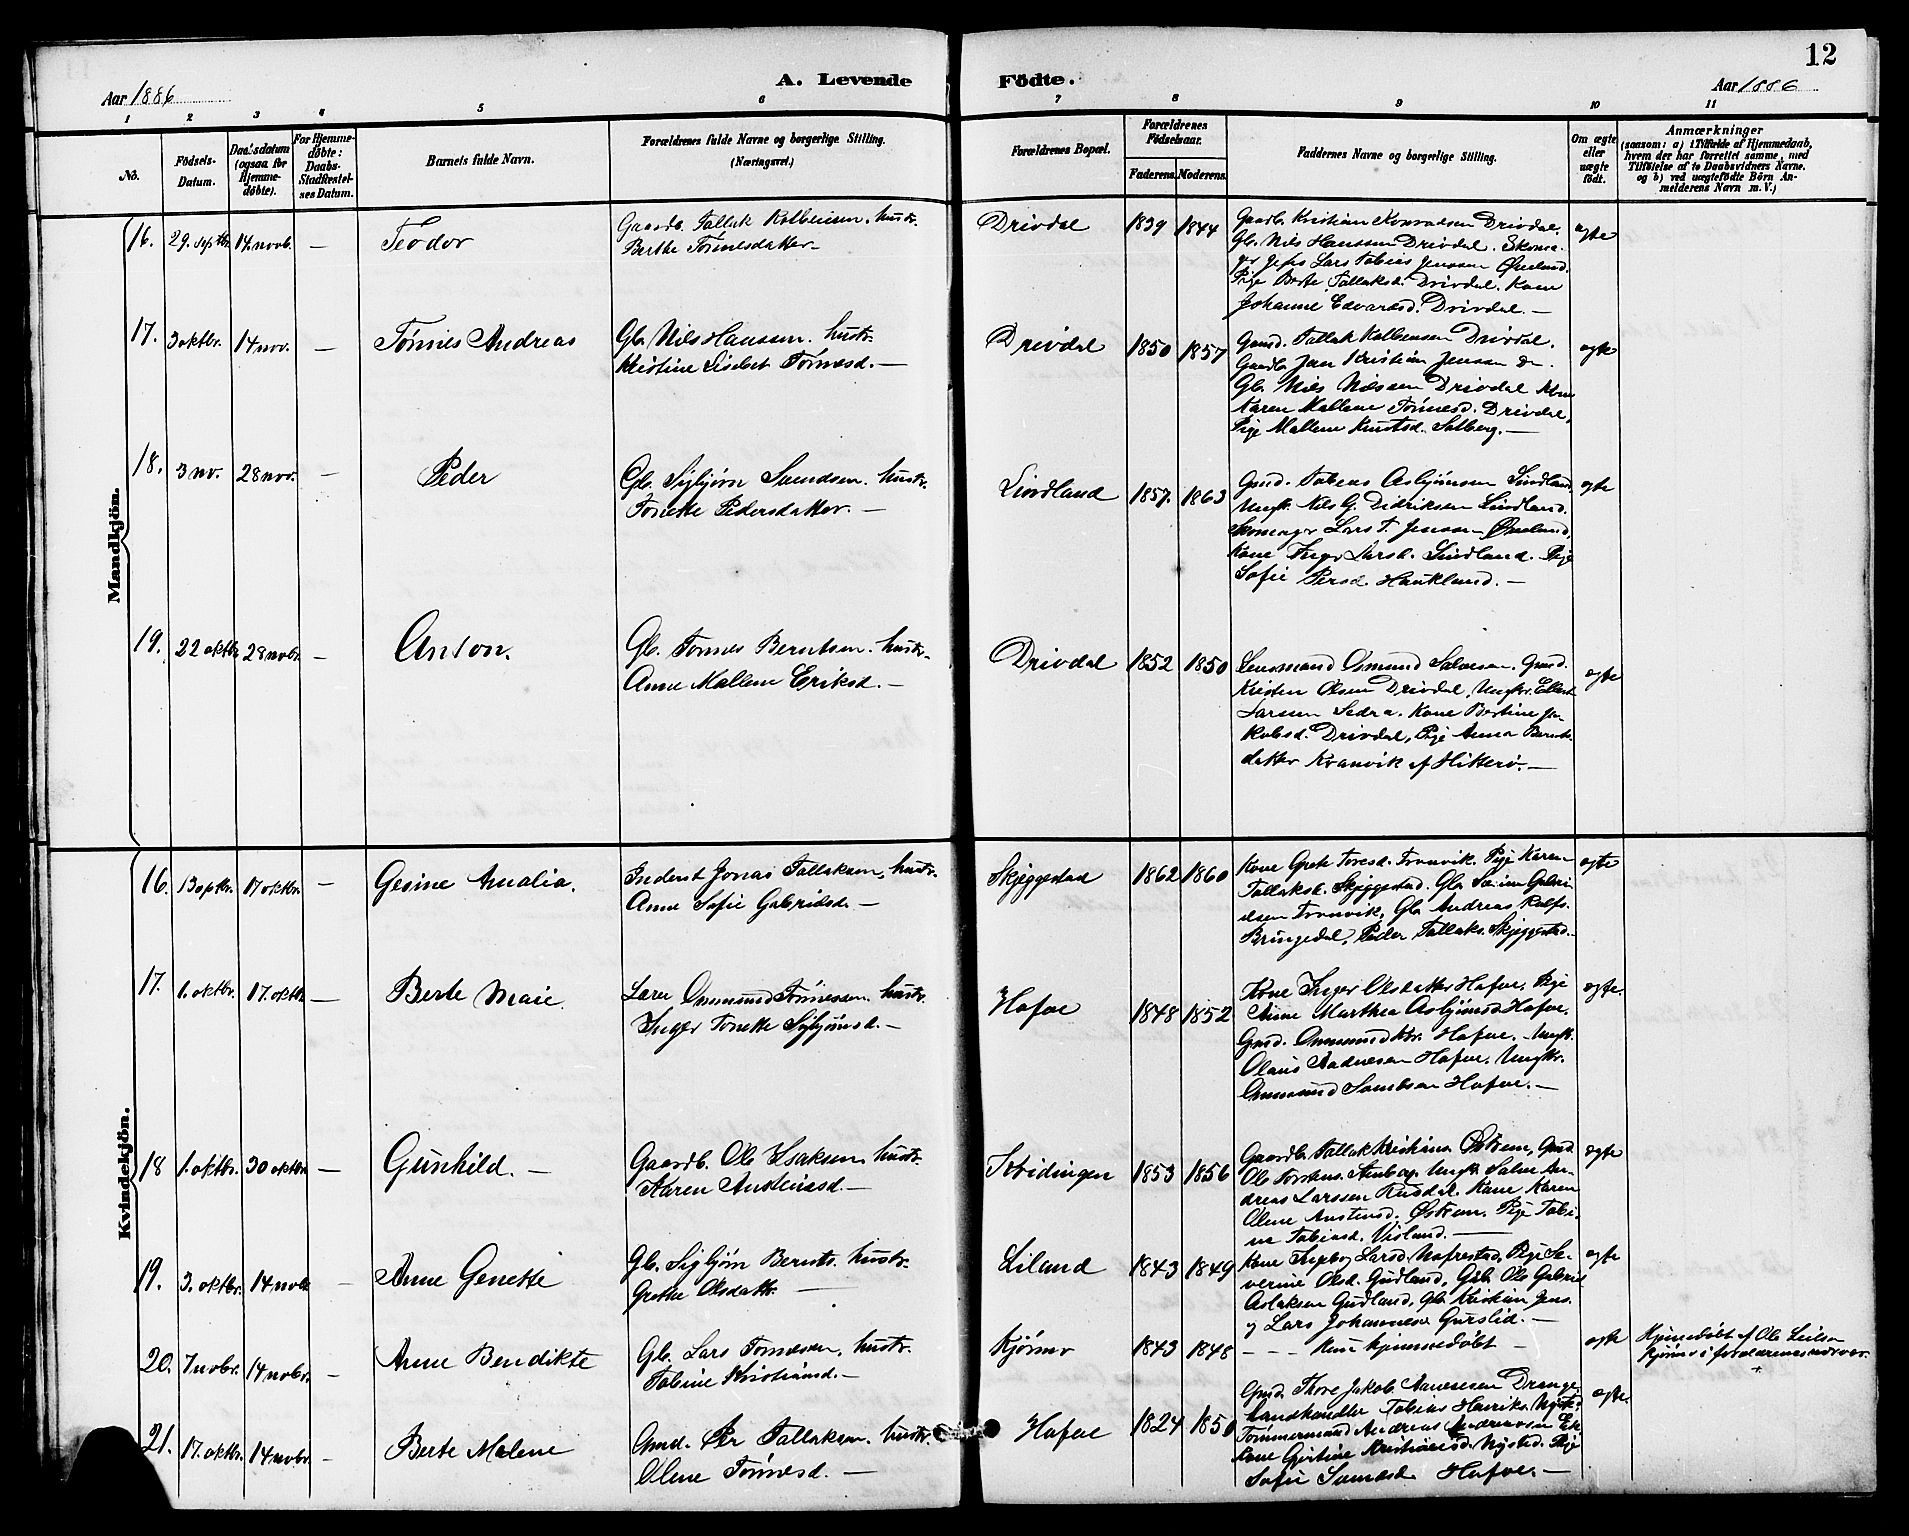 12
Aar 1886
A. Levende
Födte.
Aar 1886
1 2 3 4 5 6 7 8 9 10 11
No.
Födsels-Datum.
Daabsdatum (ogsaa for Hjemmedöbte).
For Hjemmedöbte: Daabs-Stadfæstelses Datum.
Barnets fulde Navn.
Forældrenes fulde Navne og borgerlige Stilling. (Næringsvei.)
Forældrenes Bopæl.
Forældrenes Födselsaar.
Faderens. Moderens.
Faddernes Navne og borgerlige Stilling.
Om ægte eller uægte födt.
Anmærkninger
(saasom: a) i Tilfælde af Hjemmedaab,
hvem der har forrettet samme, med
Tilföielse af to Daabsvidners Navne.
og b) ved uægtefödte Börn Anmelderens Navn m. V.)
Mandkjön.
16. 29. septbr. 14. novb. — Teodor
Gaardb. Tallak Kolbensen. hustr.
Berthe Tønnesdatter —
Drivdal 1839 1844
Gaardb. Kristian Konradsen Drivdal.
Gb. Nils Hanssen Drivdal. Skoma-
ger Lars Tobias Jenssen Øvelund.
Pige Berte Tallaksd. Drivdal. Kone
Johanne Edvardsd. Drivdal. —
egte
17. 3 oktbr. 14 nov. — Tønnes Andreas
Gb. Nils Hanssen. hustr.
Kristine Liselset Tønnesd. —
Drivdal 1850 1857
Gmd. Tallak Kolbensen Drivdal.
Gaardb. Jan Kristian Jenssen do.
Gb. Nils Nilssen Drivdal Kone
Karen Mallene Tønnesd. Drivdal,
Pige Mallene Knutsd. Solberg. —
egte
18. 3 nv. 28 nov. — Peder
Gb. Sigbjørn Svendsen. hustr.
Tonette Pedersdatter. —
Lindland 1857. 1863
Gmd. Tobias Asbjørnsen Lindland.
Ungk. Nils G. Didriksen Lindland.
Skomager Lars T. Jenssen Øvelund,
Kone Inger Larsd. Lindland. Pige
Sofie Persd. Haukland. —
egte
19. 22 oktbr. 28 nobr. — Anton.
Gb. Tønnes Berntsen. hustr.
Anne Mallene Eriksd. —
Drivdal 1852 1850
Lensmand Osmund Salvesen. Gmd.
Kristen Olsen Drivdal, Ungkr. Ellert
Larssen Sedra. Kone Bertine Ja-
kobsd. Drivdal, Pige Anna Bernts-
datter Kvanvik af Hitterø. —
egte
Kvindekjön.
16. 17 oktbr. — Gesine Amalia.
Inderst Jonas Tallaksen, hustr.
Anne Sofie Gabrielsd. —
Skjeggestad 1862 1860
Kone Grete Toresd. Tronvik. Pige Karen
Tallaksd. Skjeggestad. Gb. Gabri-
elsen Tronvik, Gb. Andreas Rolfs.
Bringedal, Peder Tallaks. Skjeggestad. —
egte
17. 1. oktbr. 17. oktbr. — Berte Maie
Lærer Ommund Tønnessen. hustr.
Inger Tonette Sigbjørnsd. —
Hafoe 1848 1852
Kone Inger Olsdatter Hafoe, Pige
Anne Marthea Asbjørnsd Hafoe,
Gmd. Ommund Hafoe. Ungk.
Olaus Aadnesen Hafoe, Ungkr.
Ommund Hafoe. —
egte.
18 1. oktbr. 30 oktbr. — Gunhild. —
Gaardb. Ole Isaksen hustr.
Karen Austensd. —
Kvidingen 1853 1856
Gaardb. Tallak Kristians. Østrem, Gmd.
Ole Ungk. An-
dreas Larssen Rusdal. Kone Karen
Olene Austensd. Østrem. Pige Tobi-
ne Tobiasd. Visland. —
egte
19. 3. oktbr. 14. nobr. — Anne Genette
Gb. Sigbjørn Bernts. hustr.
Grethe Olsdattr. —
Liland 1843 1849
Kone Ingeborg Larsd. Mofrestad, Pige Se-
verine Olsd. Gudland, Gdb. Ole Gabriel
Aslaksen Gudland, Gb. Kristian Jens.
og Lars Johannesen Gurslid. —
egte
20. 7 nobr. 14 nobr. — Anne Bendikte
Gb. Lars Tønnessen, hustr.
Tobine Kristiansd. —
Kjørmo 1843 1848
— — — Kun hjemmedøbt —
egte
Hjemmedøbt af Ole
Kjørmo i forældrenes nærvær.
21. 17. oktbr. 14 nobr. — Berte Malene
Gmd. Per Tallaksen. hustr.
Olene Tønnesd. —
Hafoe 1824 1850
Gmd. Thore Jakob Drange.
Landhandler Tobias Henriks. Nysted.
Tømmermand Andreas Andreassen Ek
Kone Gjertine Kristiansd. Nysted. Pige
Sofie Hafoe. —
egte.